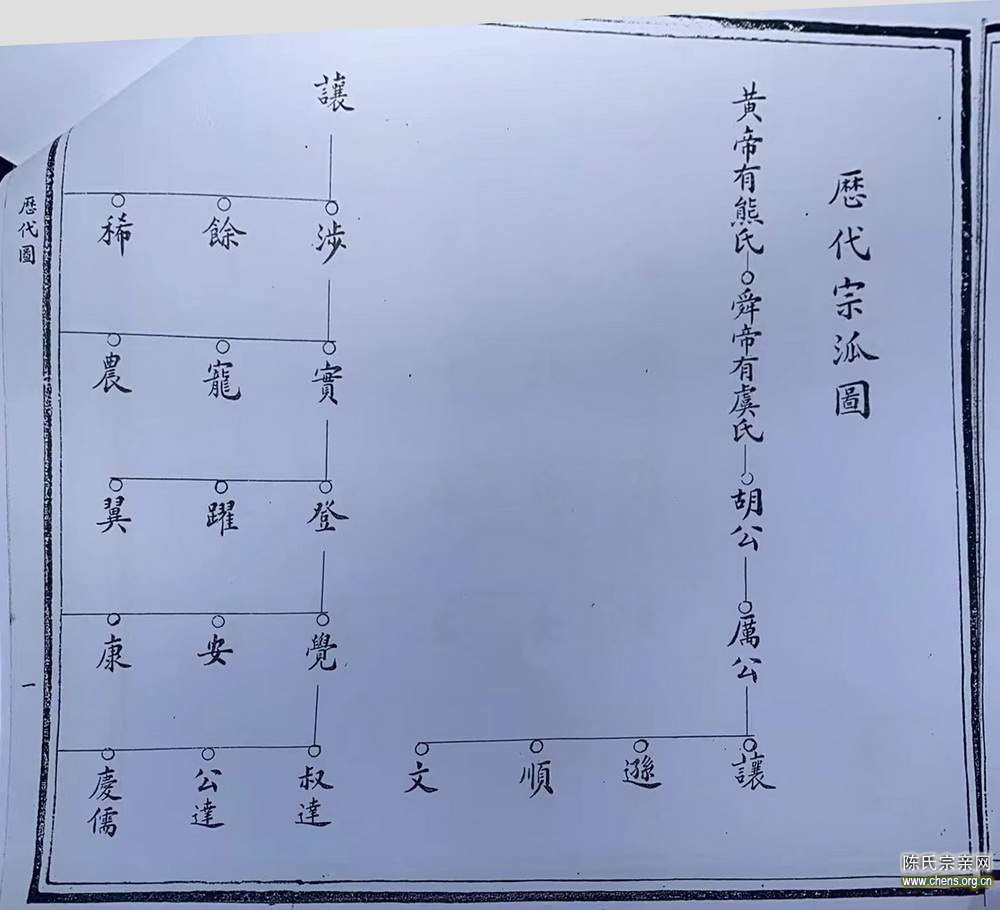 歷代宗派圖
黃帝有熊氏
舜帝有虞氏
胡公
厲公
讓
遜
順
文
讓
涉
餘
稀
實
寵
農
登
躍
翼
覺
安
康
叔達
公達
慶儒
歷代圖
一
陈氏宗亲网
www.chens.org.cn